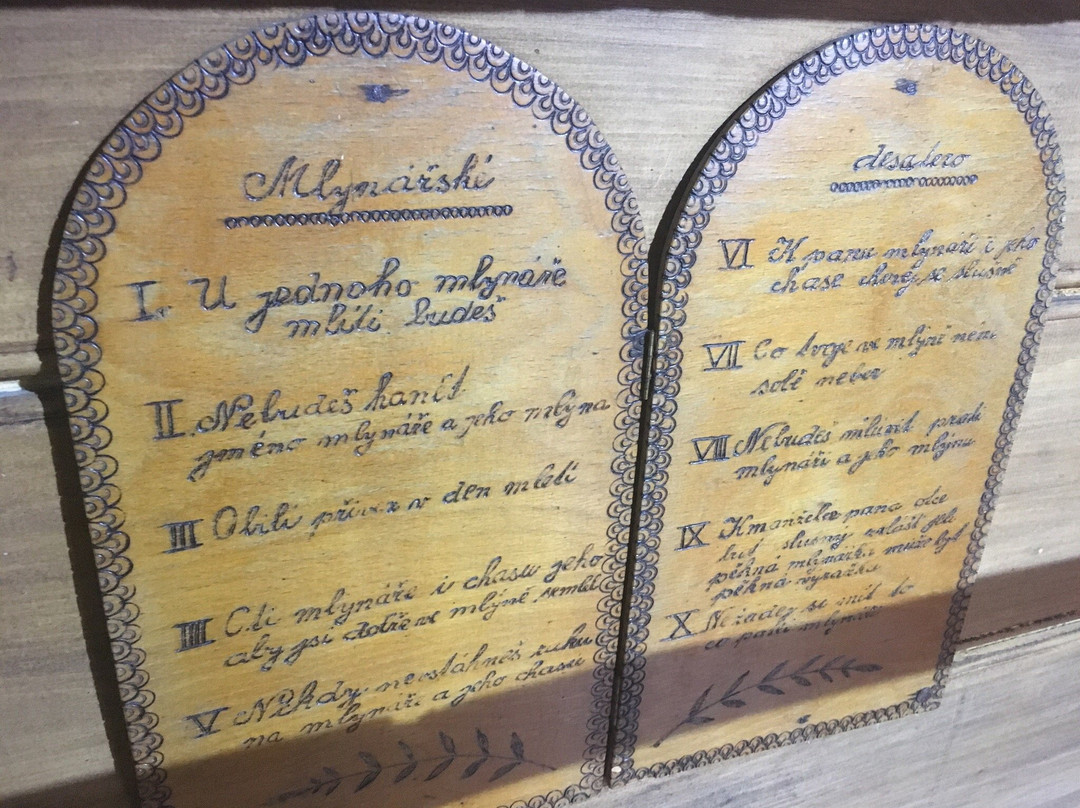 Mlynářski
I. U jednoho mlynáře
mlíti budeš
II. Nebudeš hanit
jméno mlynáře a jeho mlýna
III Obilí přivez v den mletí
IIII Cti mlynáře i chasu jeho
aby jsi dobře ve mlýně semlel
V Nikdy nevstáhneš ruku
na mlynáři a jeho chasu
desatero
VI K panu mlynáři i jeho
chase chovej se slušně
VII Co tvoje ve mlýně není
sobě neber
VIII Nebudeš mluvit proti
mlynáři a jeho mlýnu
IX K manželce pana otce
buď slušný zvlášť je-li
pěkná mlynářka může být
pěkná vyrážka
X Nežádej si mít to
co patří mlynáři